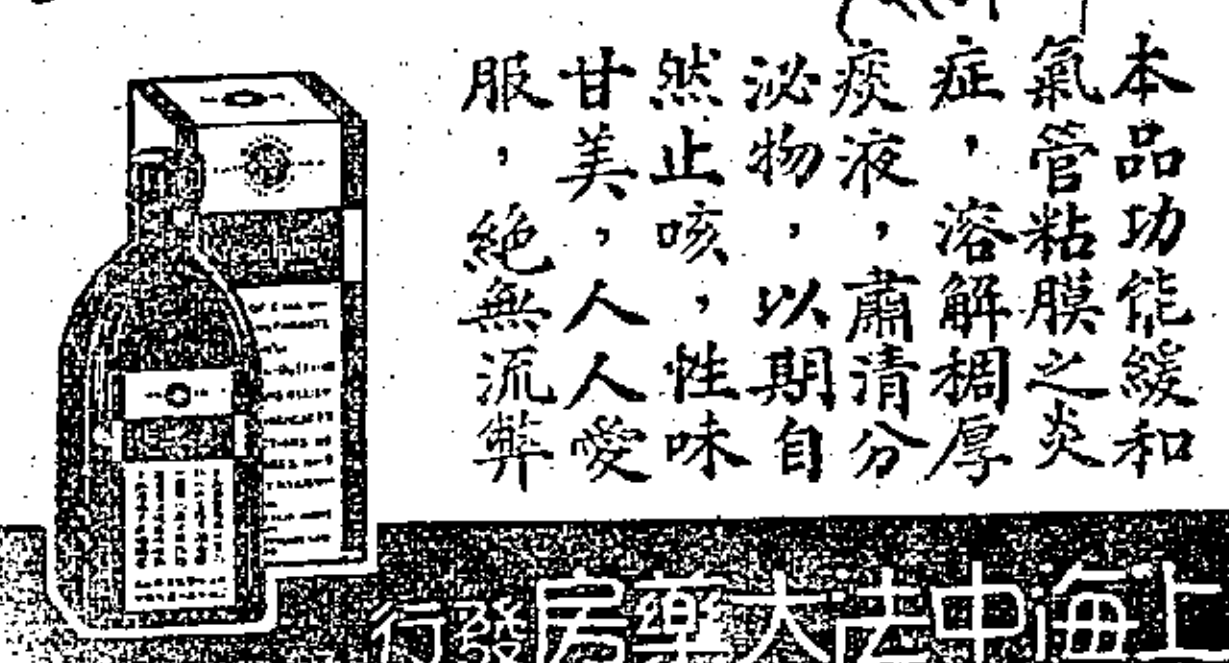 本品功能緩和
氣管粘膜之炎
症,溶解稠厚
痰液,肅清分
泌物,以期自
然止咳,性味
甘美,人人愛
服,絕無流弊
上海中法大藥房發行